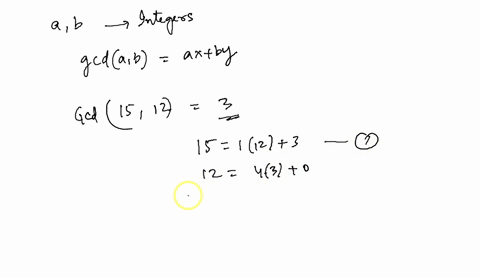 a, b → Integers
gcd(a,b) = ax+by
Gcd (15, 12) = 3
15 = 1(12) + 3 — ①
12 = 4(3) + 0